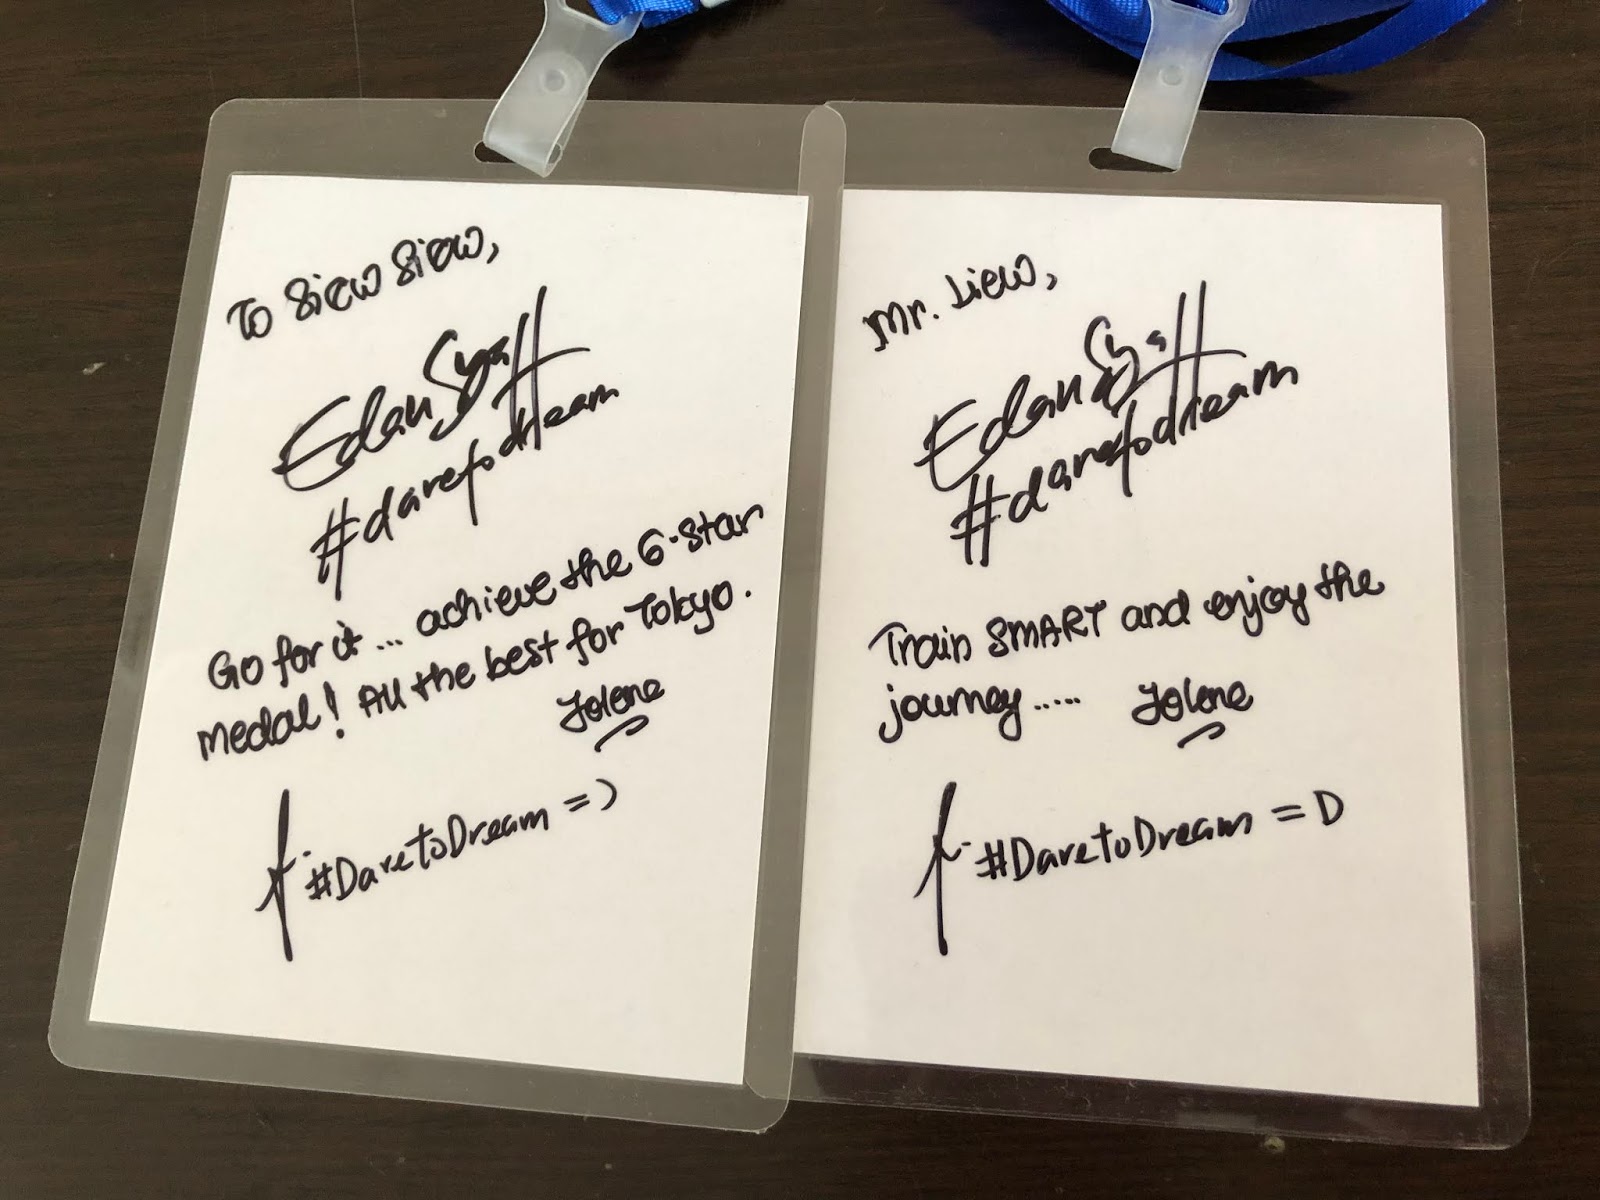 To Siew Siew,
Edan Syah
#daretodream
Go for it... achieve the 6-star
medal! All the best for Tokyo.
Jolene
#DaretoDream =)
Mr. Liew,
Edan Syah
#daretodream
Train SMART and enjoy the
journey.....
Jolene
#DaretoDream =D